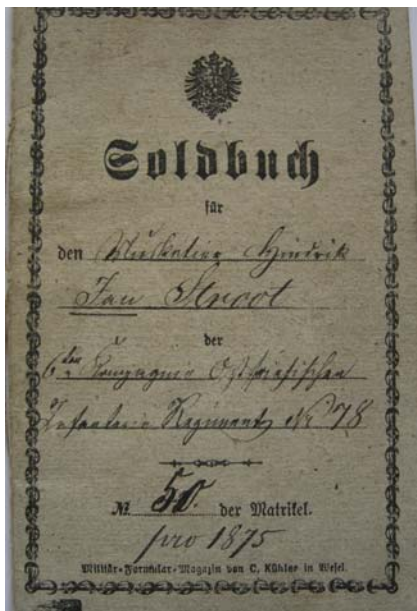 Soldbuch
für
den Musketier Hindrik
Jan Stroot
der
6ten Kompagnie Ostfriesischen
Infanterie Regiments No 78
No. 50. der Matrikel.
pro 1875
Militär-Formular-Magazin von C. Kühler in Wesel.